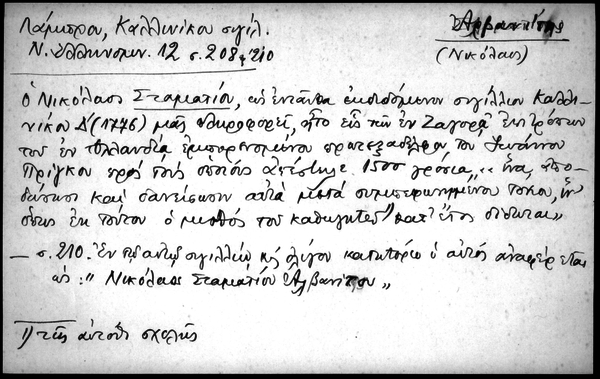 Λάμπρου, Καλλινίκου σιγίλ.
Ν. Ελληνομν. 12 σ. 208, 210
Αρβανίτης
(Νικόλαος)
Ὁ Νικόλαος Σταματίου, ὡς ἐνταῦθα ἐκδιδόμενον σιγίλλιον Καλλι-
νίκου Δ' (1776) μᾶς πληροφορεῖ, ἦτο εἷς τῶν ἐν Ζαγορᾷ ἐπιτρόπων
τοῦ ἐν Ὁλλανδίᾳ ἐμπορευομένου Ἰωάννου
Πρίγκου πρὸς τοὺς ὁποίους ἀπέστειλε 1500 γρόσια, "ἵνα ἀπο-
καὶ δανείσωσι αὐτὰ μετὰ συμπεφωνημένου τόκου,
ἐκ τούτου ὁ μισθὸς τοῦ καθηγητοῦ¹ κατ' ἔτος δίδωται"
— σ. 210. Ἐν τῷ αὐτῷ σιγιλλίῳ καὶ ὀλίγον κατωτέρω ὁ αὐτὸς ἀναφέρεται
ὡς: "Νικόλαος Σταματίου Ἀλβανίτου"
1) τῆς αὐτόθι σχολῆς